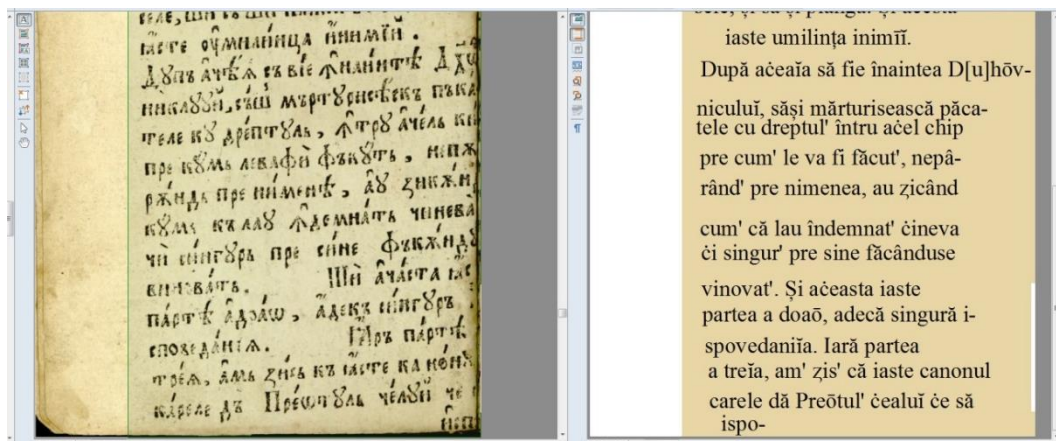 селе, ши съ ши
ꙗ҆сте ᲂу҆мили́нца и҆́нимїй.
Дꙋпъ а҆чѣ́ꙗ съ фїе ꙟ҆наи́нтѣ
никꙋлꙋй, съши мъртꙋрисѣ́скъ пъка
теле кꙋ дрéптꙋль, ꙟ҆трꙋ а҆чéль ки
пре кꙋмь леваѳѝ фъкꙋть, непѫ
рѫ́ндь пре ни́менѣ, а҆ꙋ зикѫ́н
кꙋмь къ лаꙋ ꙟ҆демна́ть чинева̀
чѝ си́нгꙋрь пре си́не фъкѫ́ндꙋ
винова́ть. Шѝ а҆ча́ста ꙗ҆с
па́ртѣ а҆дóаѡ, а҆декъ си́нгꙋръ
споведáнїꙗ. Ꙗ҆ръ па́ртѣ
трéꙗ, а҆мь зись къ ꙗ҆́сте канóнꙋ
ка́реле дъ Преѡ́тꙋль чéлꙋй че
и҆сп
sele, și să și plângă. Și aceasta
iaste umilința inimiĭ.
După aċeaĭa să fie înaintea D[u]hōv-
niculuĭ, săși mărturisească păca-
tele cu dreptul' întru aċel chip
pre cum' le va fi făcut', nepâ-
rând' pre nimenea, au zicând
cum' că lau îndemnat' ċineva
ċi singur' pre sine făcânduse
vinovat'. Și aċeasta iaste
partea a doaō, adecă singură i-
spovedaniĭa. Iară partea
a treĭa, am' zis' că iaste canonul
carele dă Preōtul' ċealuĭ ċe să
ispo-